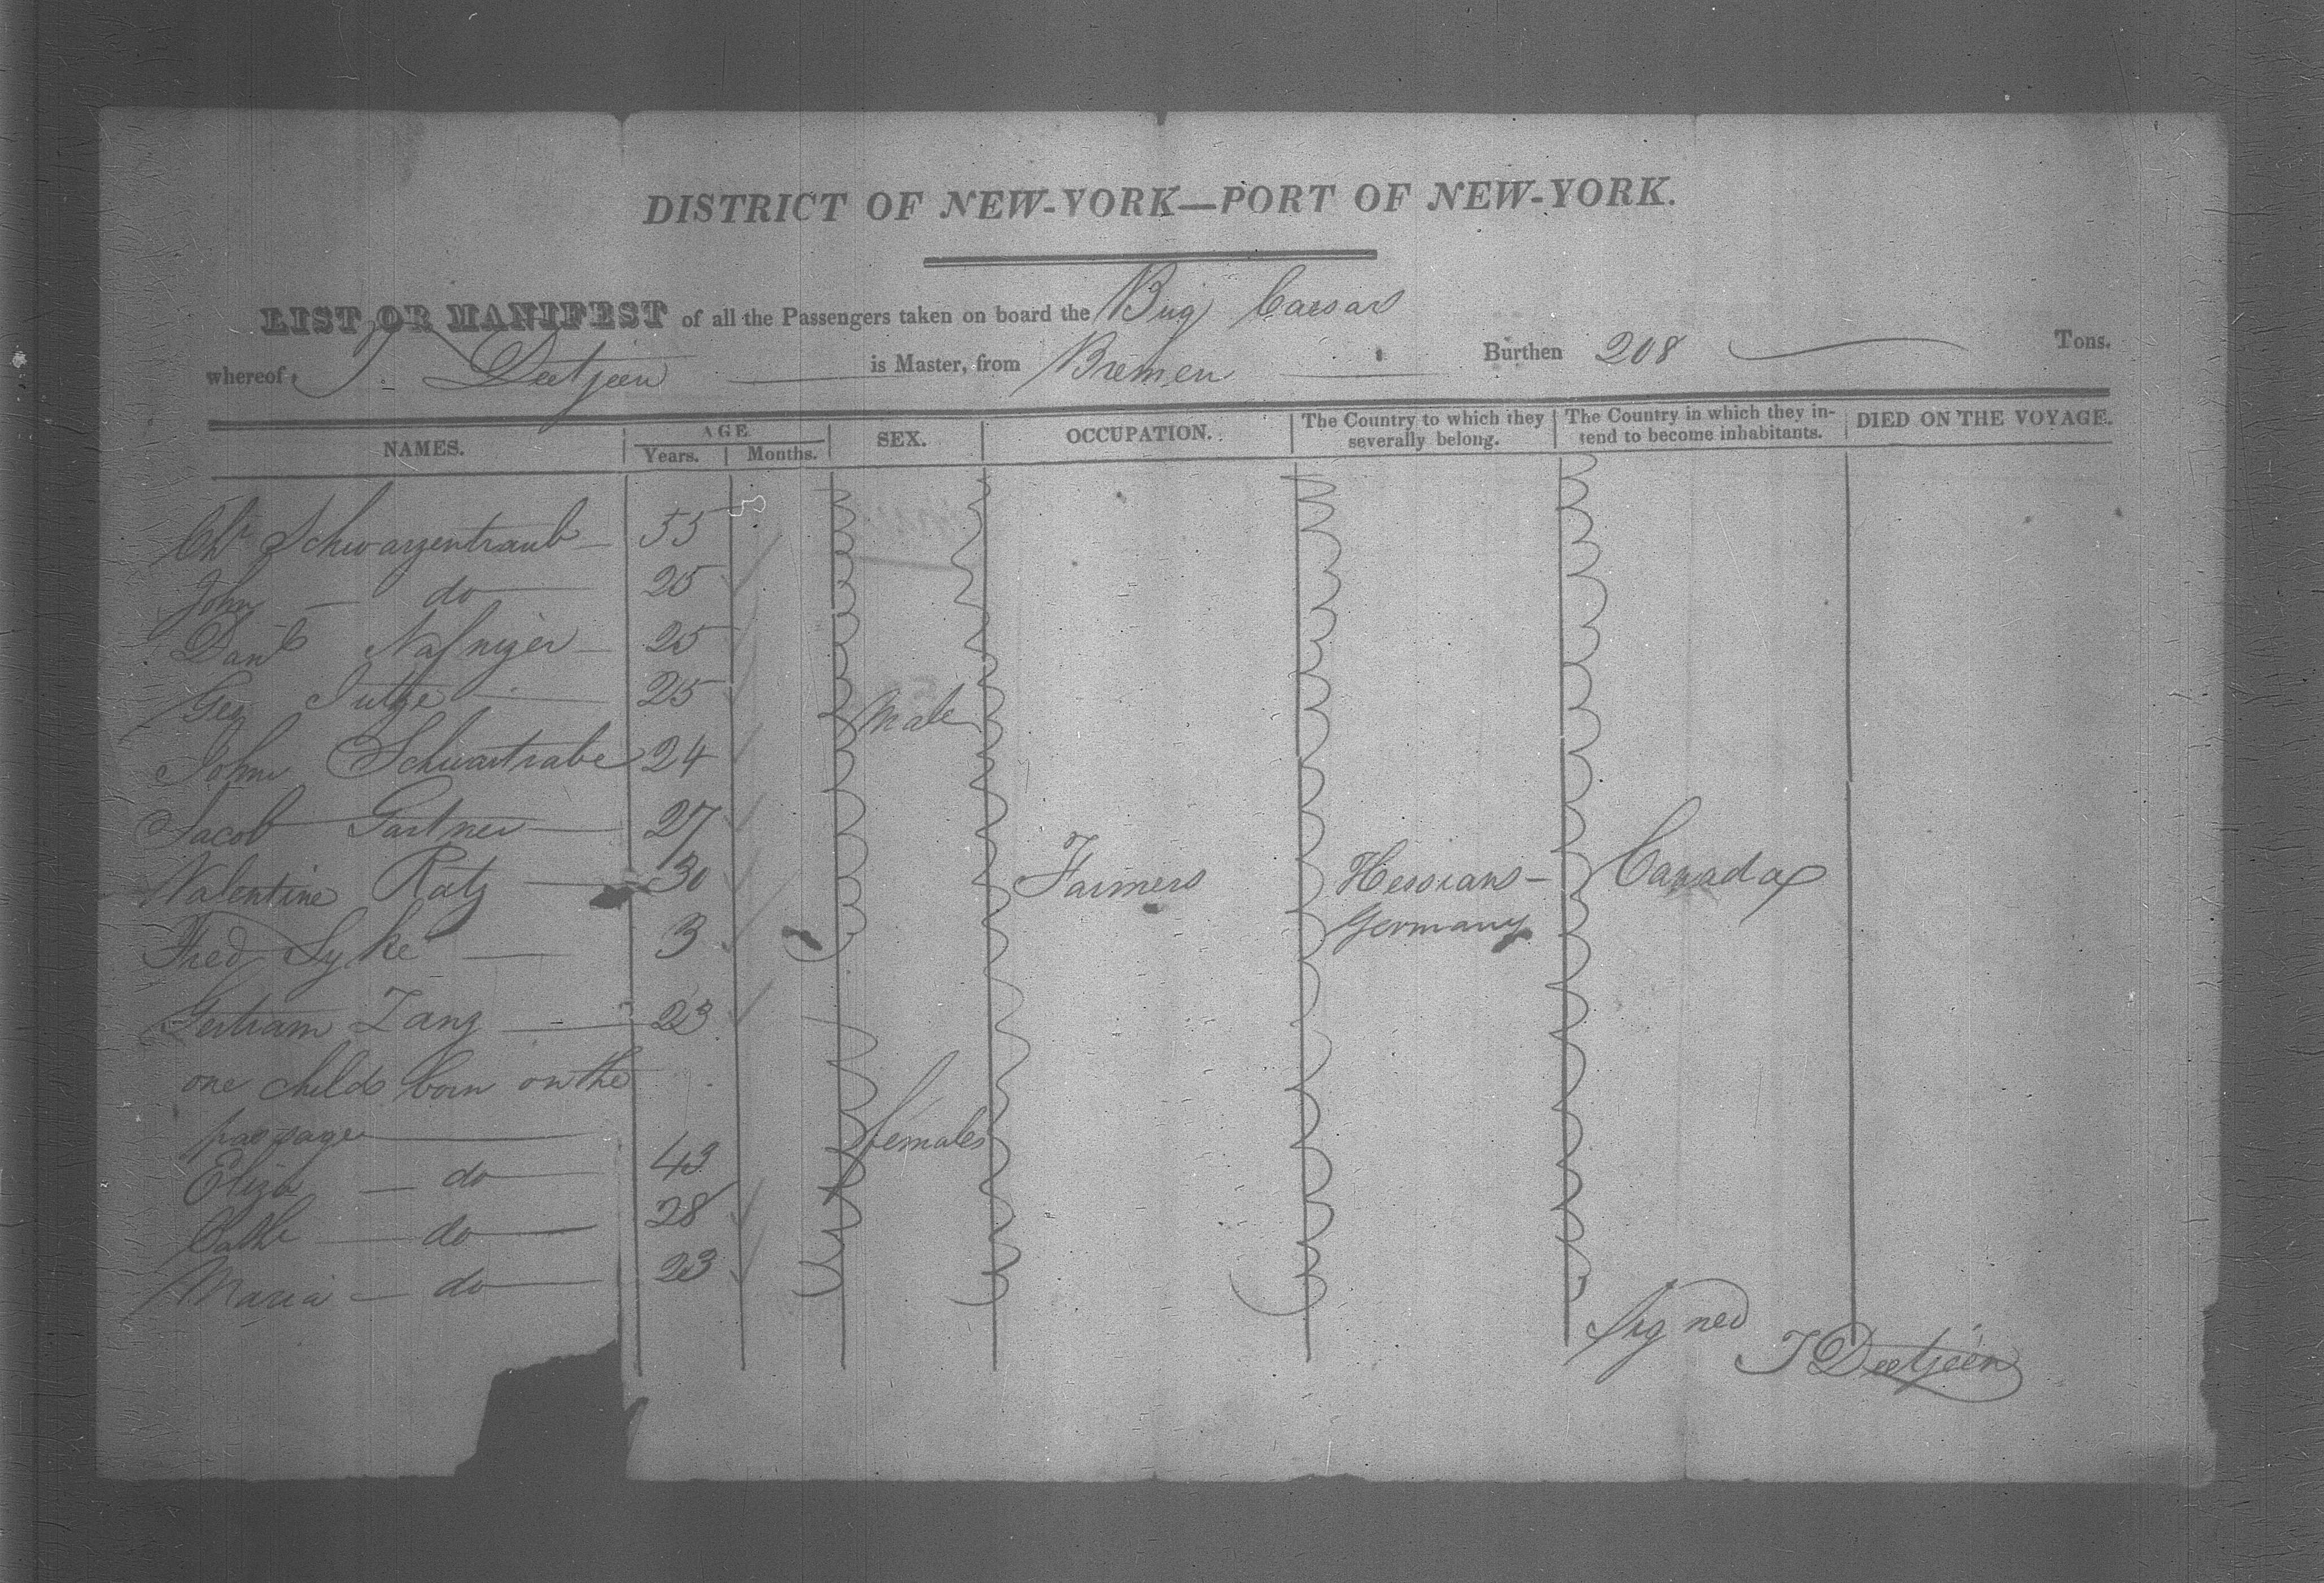 DISTRICT OF NEW-YORK—PORT OF NEW-YORK.
LIST OR MANIFEST of all the Passengers taken on board the Brig Caesar
whereof J. Deetjeen is Master, from Bremen Burthen 208 Tons.
NAMES. AGE Years. Months. SEX. OCCUPATION. The Country to which they severally belong. The Country in which they intend to become inhabitants. DIED ON THE VOYAGE.
Chr Schwarzentraub 55
John — do 25
Danl Nafniger 25
Geo Jutze 25
Male
John Schwartrabe 24
Jacob Gartner 27
Valentine Ratz 30 Farmers Hessians - Canada
Germany
Fred Syke 3
Gertram Zang 23
one child born on the
passage
females
Eliza — do 43
Cathe — do 28
Maria — do 23
Signed
J Deetjeen